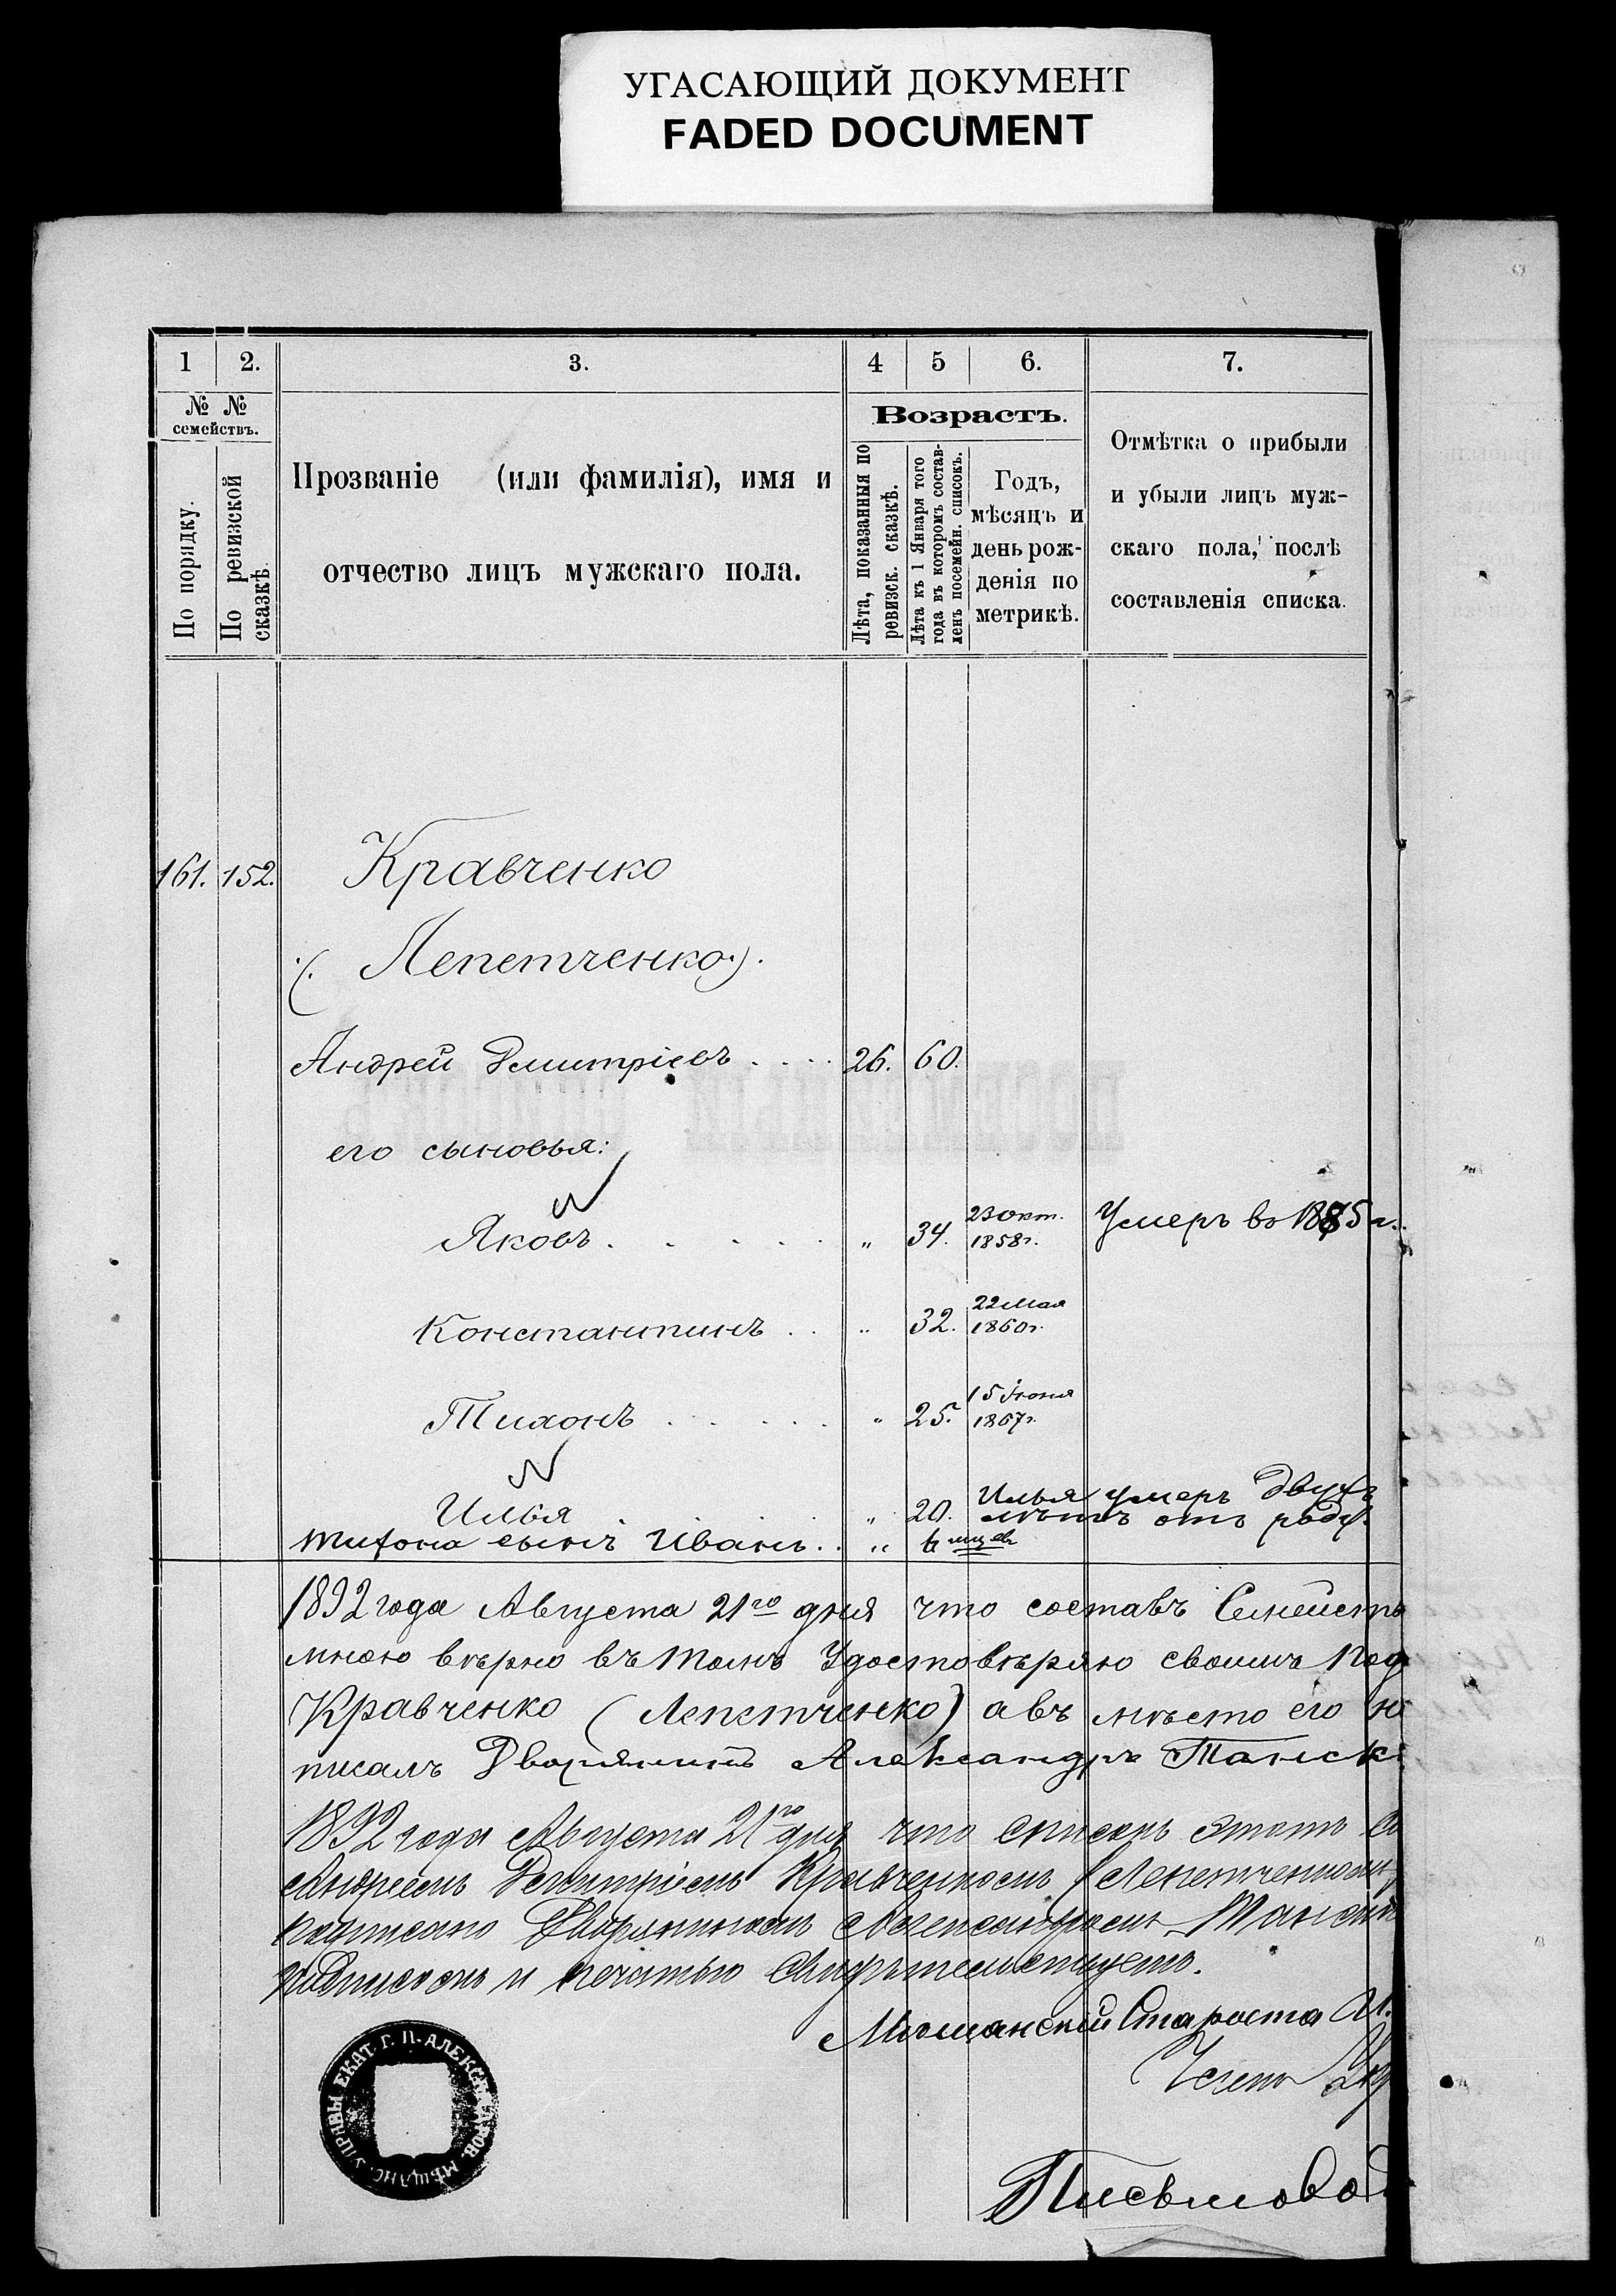 УГАСАЮЩИЙ ДОКУМЕНТ
FADED DOCUMENT
1 2. 3. 4 5 6. 7.
№ № семействъ.
По порядку.
По ревизской сказкѣ.
Прозваніе (или фамилія), имя и
отчество лицъ мужскаго пола.
Возрастъ.
Лѣта, показанныя по ревизск. сказкѣ.
Лѣта къ 1 Января того года въ которомъ составленъ посемейн. списокъ.
Годъ,
мѣсяцъ и
день рож-
денія по
метрикѣ.
Отмѣтка о прибыли
и убыли лицъ муж-
скаго пола, послѣ
составленія списка.
161. 152. Кравченко
(Лепетченко).
Андрей Дмитріевъ . . . . 26. 60.
его сыновья:
Яковъ . . . . . „ 34. 23 Окт. 1858 г. Умеръ въ 1885 г.
Константинъ . . „ 32. 22 Мая 1860 г.
Тихонъ . . . . . „ 25. 15 Іюня 1867 г.
Илья „ 20. Илья умеръ двухъ
лѣтъ отъ роду.
Тихона сынъ Иванъ . . „ 6 мцев
1892 года Августа 21го дня что составъ Семейств
мною вѣрно въ томъ Удостовѣряю своимъ Под
Кравченко (Лепетченко) а въ мѣсто его
писалъ Дворянинъ Александръ Танскі
1892 года Августа 21го дня что списокъ этотъ
Андреемъ Дмитріевъ Кравченкомъ (Лепетченкомъ)
подписано Дворяниномъ Александромъ Танск
подписомъ и печатью Свидѣтельствуетъ.
Мѣщанскій Староста И.
Члены
Письмовод
ЕКАТ. Г. П. АЛЕКСАНДРОВ. МѢЩАНС. УПРАВЫ